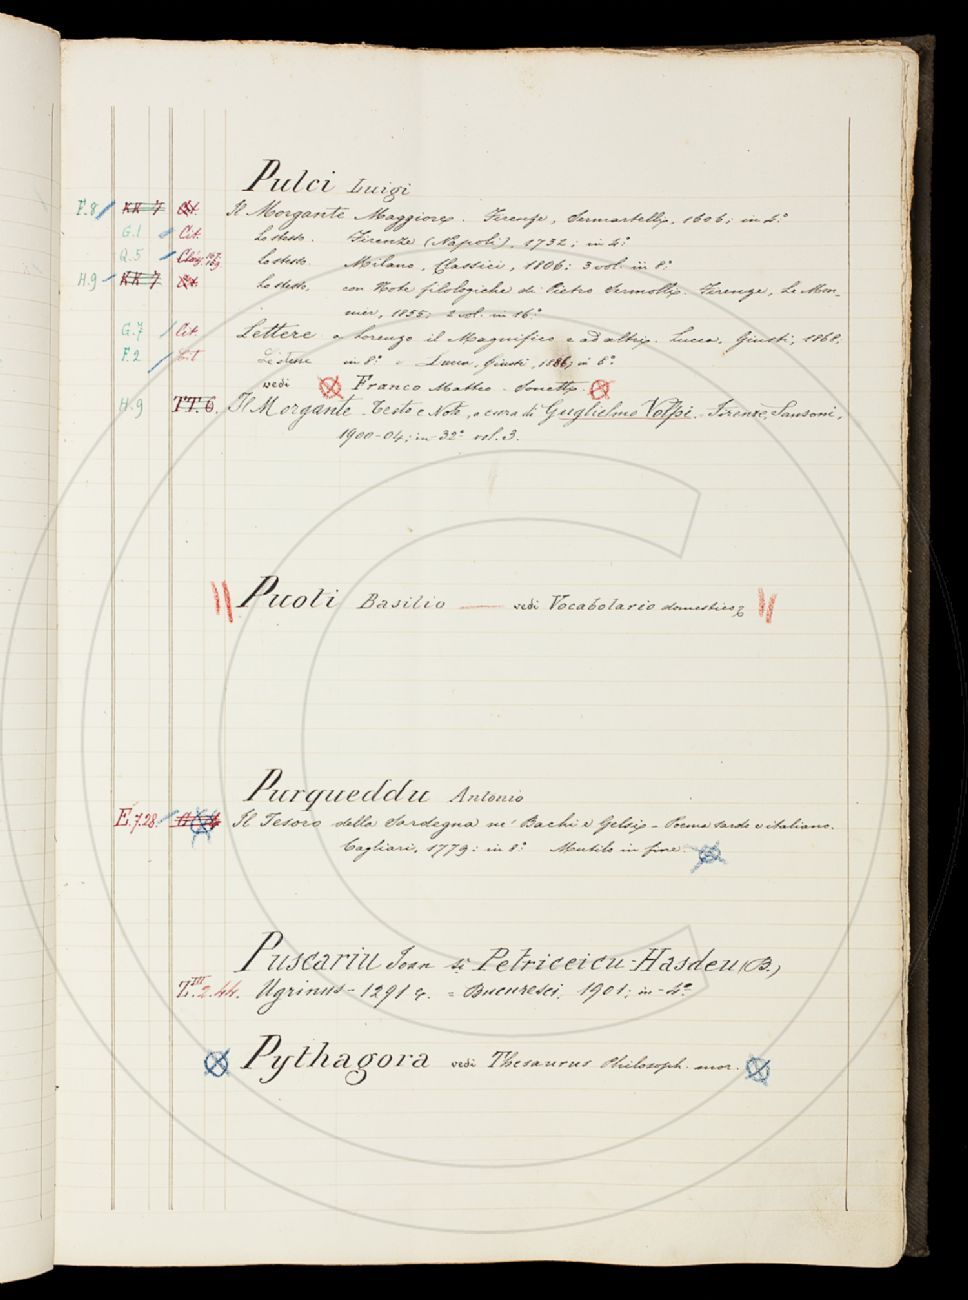 Pulci Luigi
F.8 KK 7 Cit. Il Morgante Maggiore. Firenze, Sermartelli, 1606; in 4.°
G.1 Cit. Lo stesso. Firenze (Napoli), 1732; in 4.°
Q.5 Lo stesso. Milano, Classici, 1806: 3 vol. in 8.°
H.9 KK 7 Cit. Lo stesso, con Note filologiche di Pietro Sermolli. Firenze, Le Mon-
nier, 1855; 2 vol. in 16.°
G.7 Cit. Lettere a Lorenzo il Magnifico e ad altri. Lucca, Giusti, 1868.
F.2 Cit. Le stesse in 8.° = Lucca, Giusti, 1886, in 8.°
vedi Franco Matteo. Sonetti.
H.9 TT.6. Il Morgante Testo e Note, a cura di Guglielmo Volpi. Firenze, Sansoni,
1900-04; in 32.° vol. 3.
Puoti Basilio — vedi Vocabolario domestico
Purqueddu Antonio
E.7.28. Il Tesoro della Sardegna ne' Bachi e Gelsi - Poema sardo e italiano.
Cagliari, 1779: in 8.° Mutilo in fine.
Puscariu Ioan și Petriceicu-Hasdeu (B.)
Z.III 2.44. Ugrinus - 1291 = Bucuresci, 1901; in-4.°
Pythagora vedi Thesaurus Philosoph. mor.